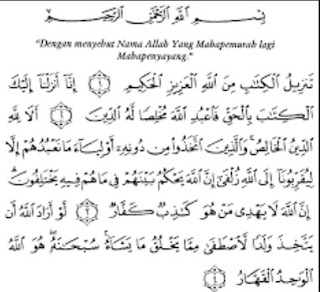 بِسْمِ اللَّهِ الرَّحْمَٰنِ الرَّحِيمِ
"Dengan menyebut Nama Allah Yang Mahapemurah lagi
Mahapenyayang."
تَنزِيلُ الْكِتَٰبِ مِنَ اللَّهِ الْعَزِيزِ الْحَكِيمِ ۝١ إِنَّآ أَنزَلْنَآ إِلَيْكَ
الْكِتَٰبَ بِالْحَقِّ فَاعْبُدِ اللَّهَ مُخْلِصًا لَّهُ الدِّينَ ۝٢ أَلَا لِلَّهِ
الدِّينُ الْخَالِصُ ۚ وَالَّذِينَ اتَّخَذُوا۟ مِن دُونِهِۦٓ أَوْلِيَآءَ مَا نَعْبُدُهُمْ إِلَّا
لِيُقَرِّبُونَآ إِلَى اللَّهِ زُلْفَىٰٓ إِنَّ اللَّهَ يَحْكُمُ بَيْنَهُمْ فِى مَا هُمْ فِيهِ يَخْتَلِفُونَ ۗ
إِنَّ اللَّهَ لَا يَهْدِى مَنْ هُوَ كَٰذِبٌ كَفَّارٌ ۝٣ لَّوْ أَرَادَ اللَّهُ أَن
يَتَّخِذَ وَلَدًا لَّاصْطَفَىٰ مِمَّا يَخْلُقُ مَا يَشَآءُ ۚ سُبْحَٰنَهُۥ ۖ هُوَ اللَّهُ
الْوَٰحِدُ الْقَهَّارُ ۝٤